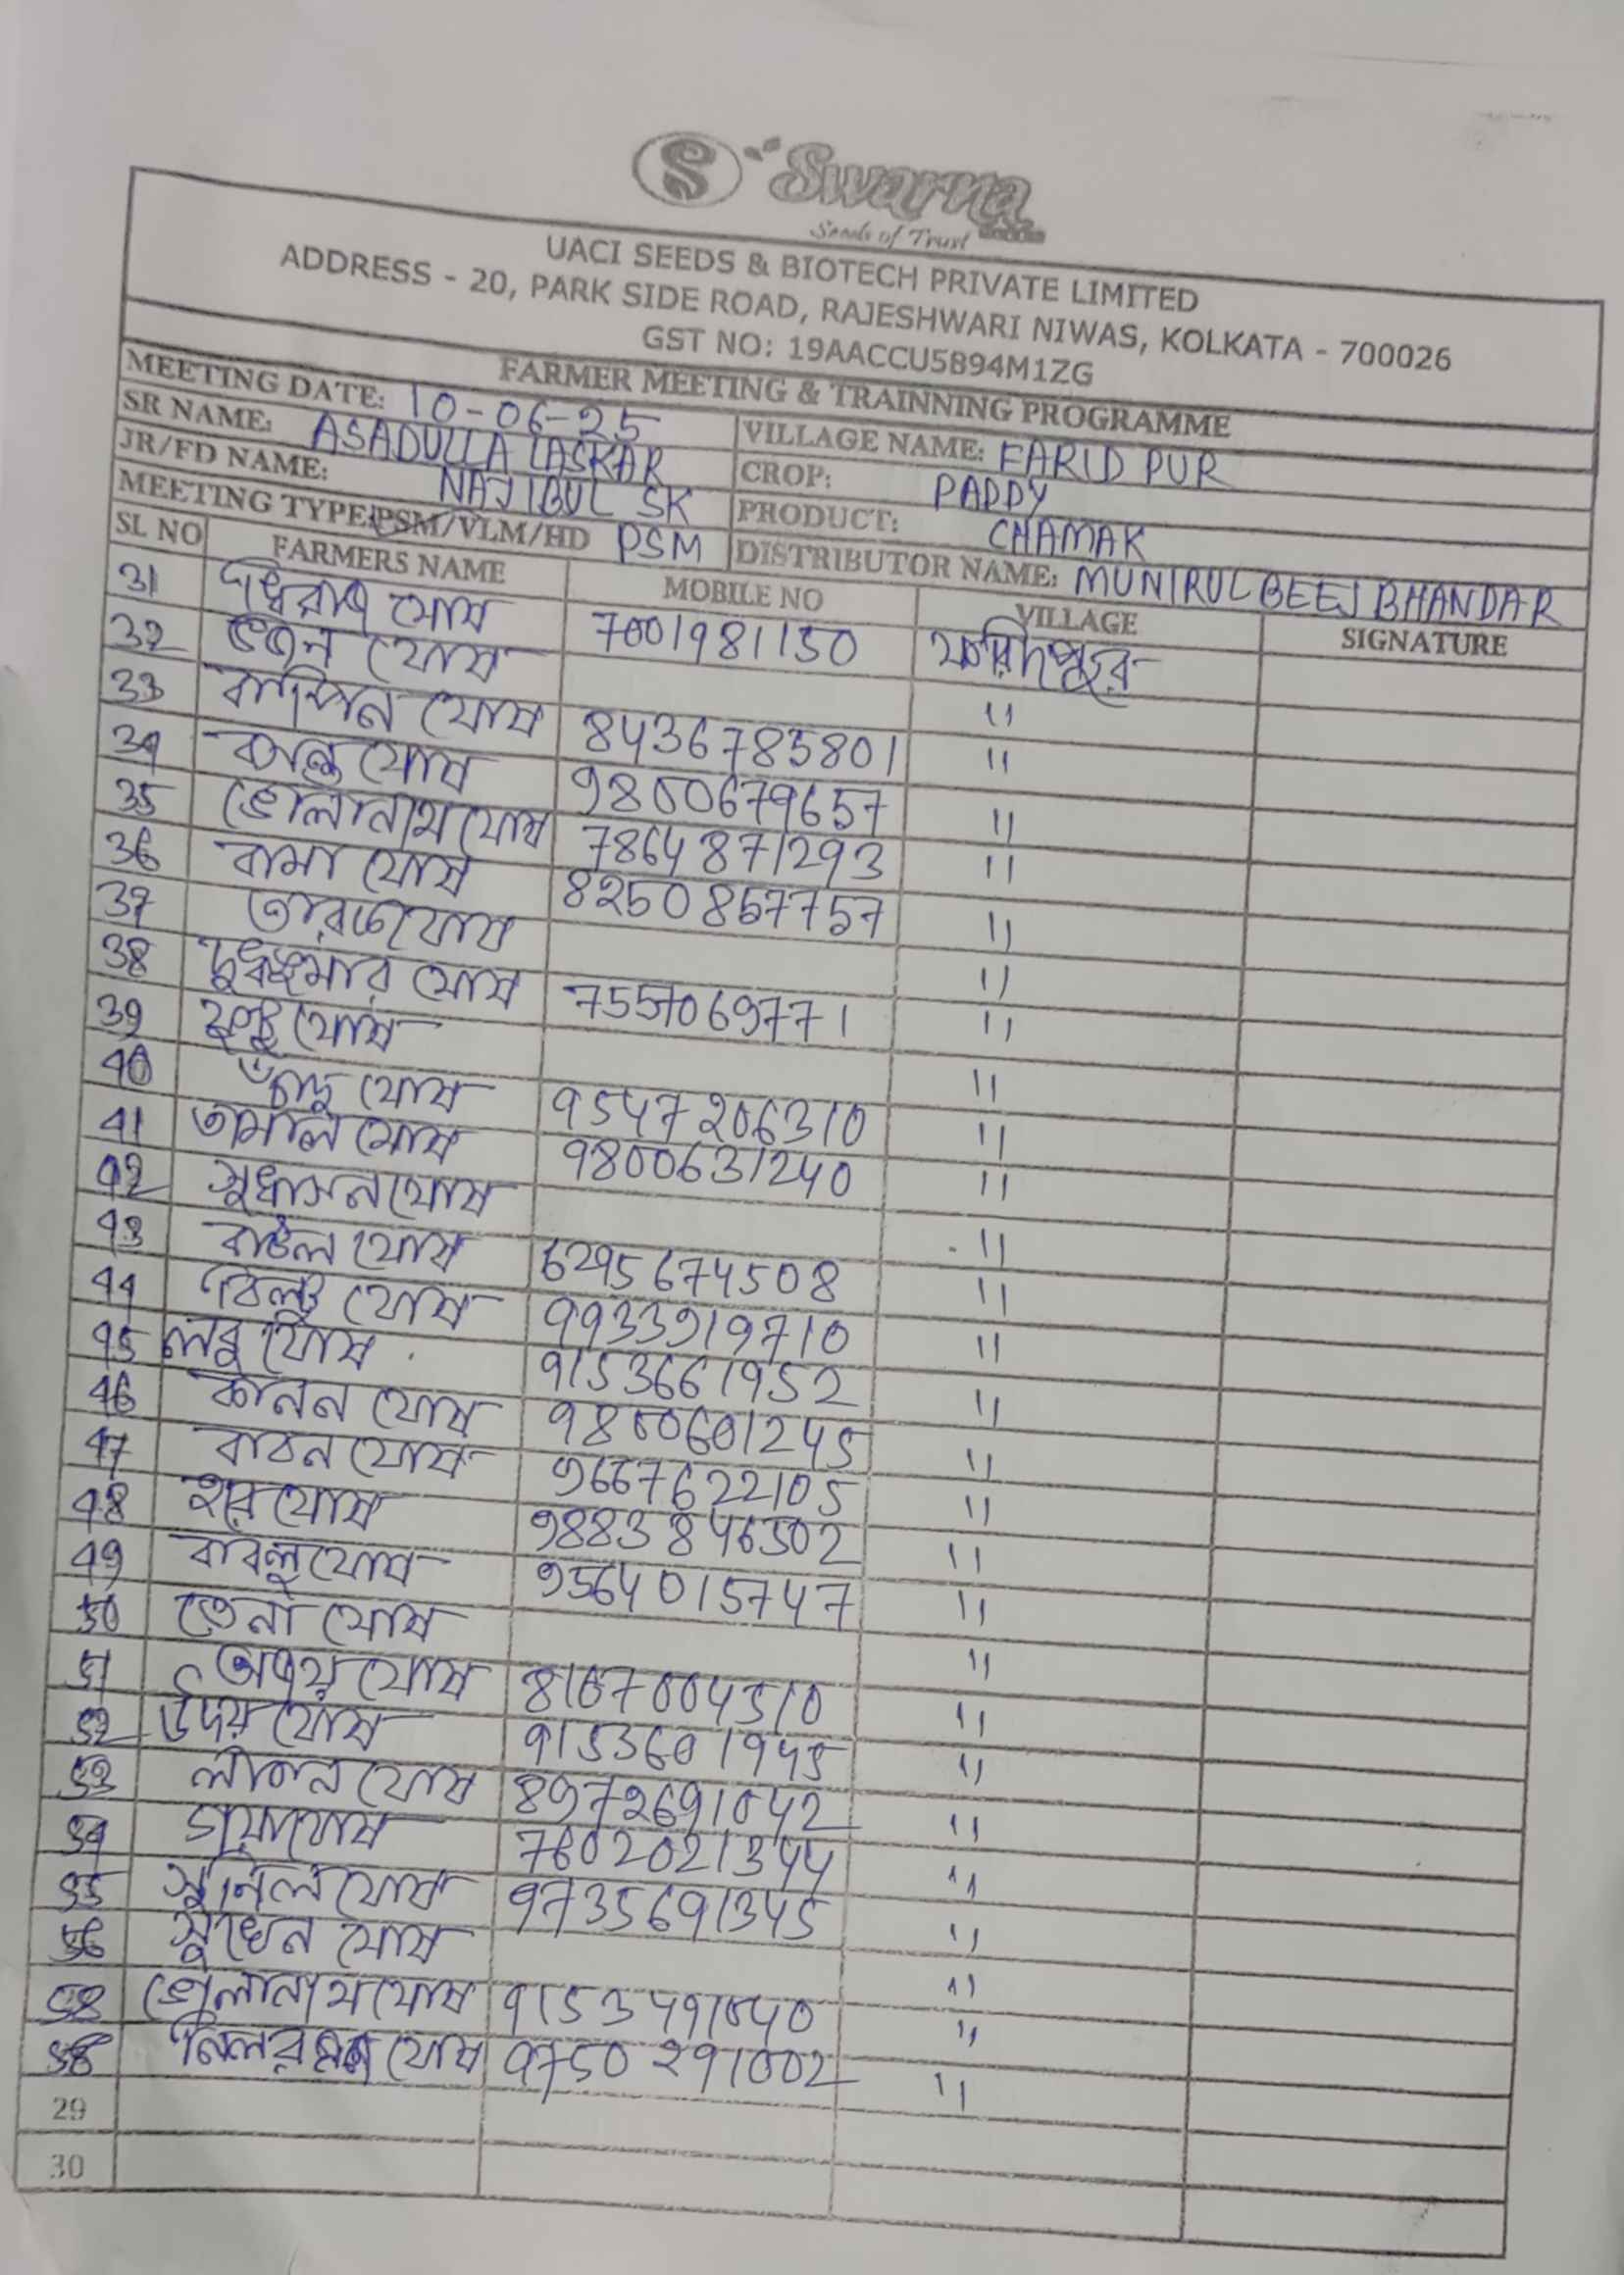 S Swarna
Seeds of Trust
UACI SEEDS & BIOTECH PRIVATE LIMITED
ADDRESS - 20, PARK SIDE ROAD, RAJESHWARI NIWAS, KOLKATA - 700026
GST NO: 19AACCU5894M1ZG
FARMER MEETING & TRAINNING PROGRAMME
MEETING DATE: 10-06-25 VILLAGE NAME: FARID PUR
SR NAME: ASADULLA LASKAR CROP: PADDY
JR/FD NAME: NAJIBUL SK PRODUCT: CHAMAK
MEETING TYPE:PSM/VLM/HD PSM DISTRIBUTOR NAME: MUNIRUL BEEJ BHANDAR
SL NO FARMERS NAME MOBILE NO VILLAGE SIGNATURE
31 ঘোষ 7001981150 ফরিদপুর
32 ঘোষ "
33 ঘোষ 8436783801 "
34 ঘোষ 9800679657 "
35 ভোলানাথ ঘোষ 7864871293 "
36 বামা ঘোষ 8250857757 "
37 ঘোষ "
38 দুধকুমার ঘোষ 7557069771 "
39 ঘোষ "
40 ঘোষ 9547206310 "
41 তামাল ঘোষ 9800631240 "
42 ঘোষ "
43 বাউল ঘোষ 6295674508 "
44 ঘোষ 9933919710 "
45 লবু ঘোষ 9153661952 "
46 কানন ঘোষ 9800601245 "
47 ঘোষ 9667622105 "
48 হরে ঘোষ 9883846502 "
49 বাবলু ঘোষ 9564015747 "
50 ঘোষ "
51 অজয় ঘোষ 8167004510 "
52 উদয় ঘোষ 9153601945 "
53 ঘোষ 8972691042 "
54 গয়া ঘোষ 7602021344 "
55 সুনিল ঘোষ 9735691345 "
56 সুখেন ঘোষ "
58 ভোলানাথ ঘোষ 9153491040 "
58 ঘোষ 9750291002 "
29
30